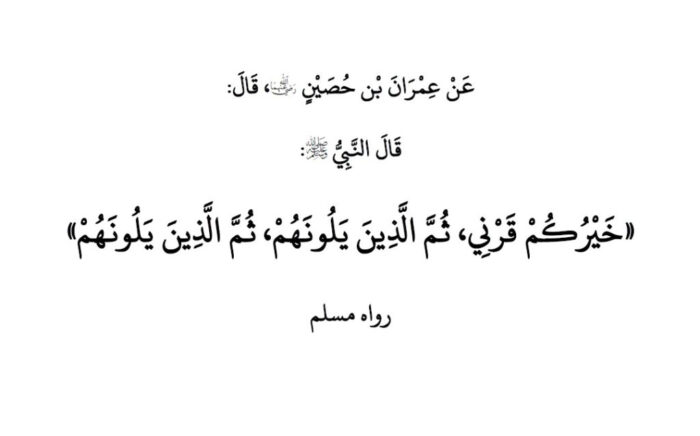 عَنْ عِمْرَانَ بْنِ حُصَيْنٍ رضي الله عنهما، قَالَ:
قَالَ النَّبِيُّ ﷺ:
«خَيْرُكُمْ قَرْنِي، ثُمَّ الَّذِينَ يَلُونَهُمْ، ثُمَّ الَّذِينَ يَلُونَهُمْ»
رواه مسلم